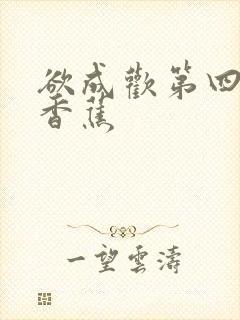 欲成歡第四
香蕉
一望雲濤